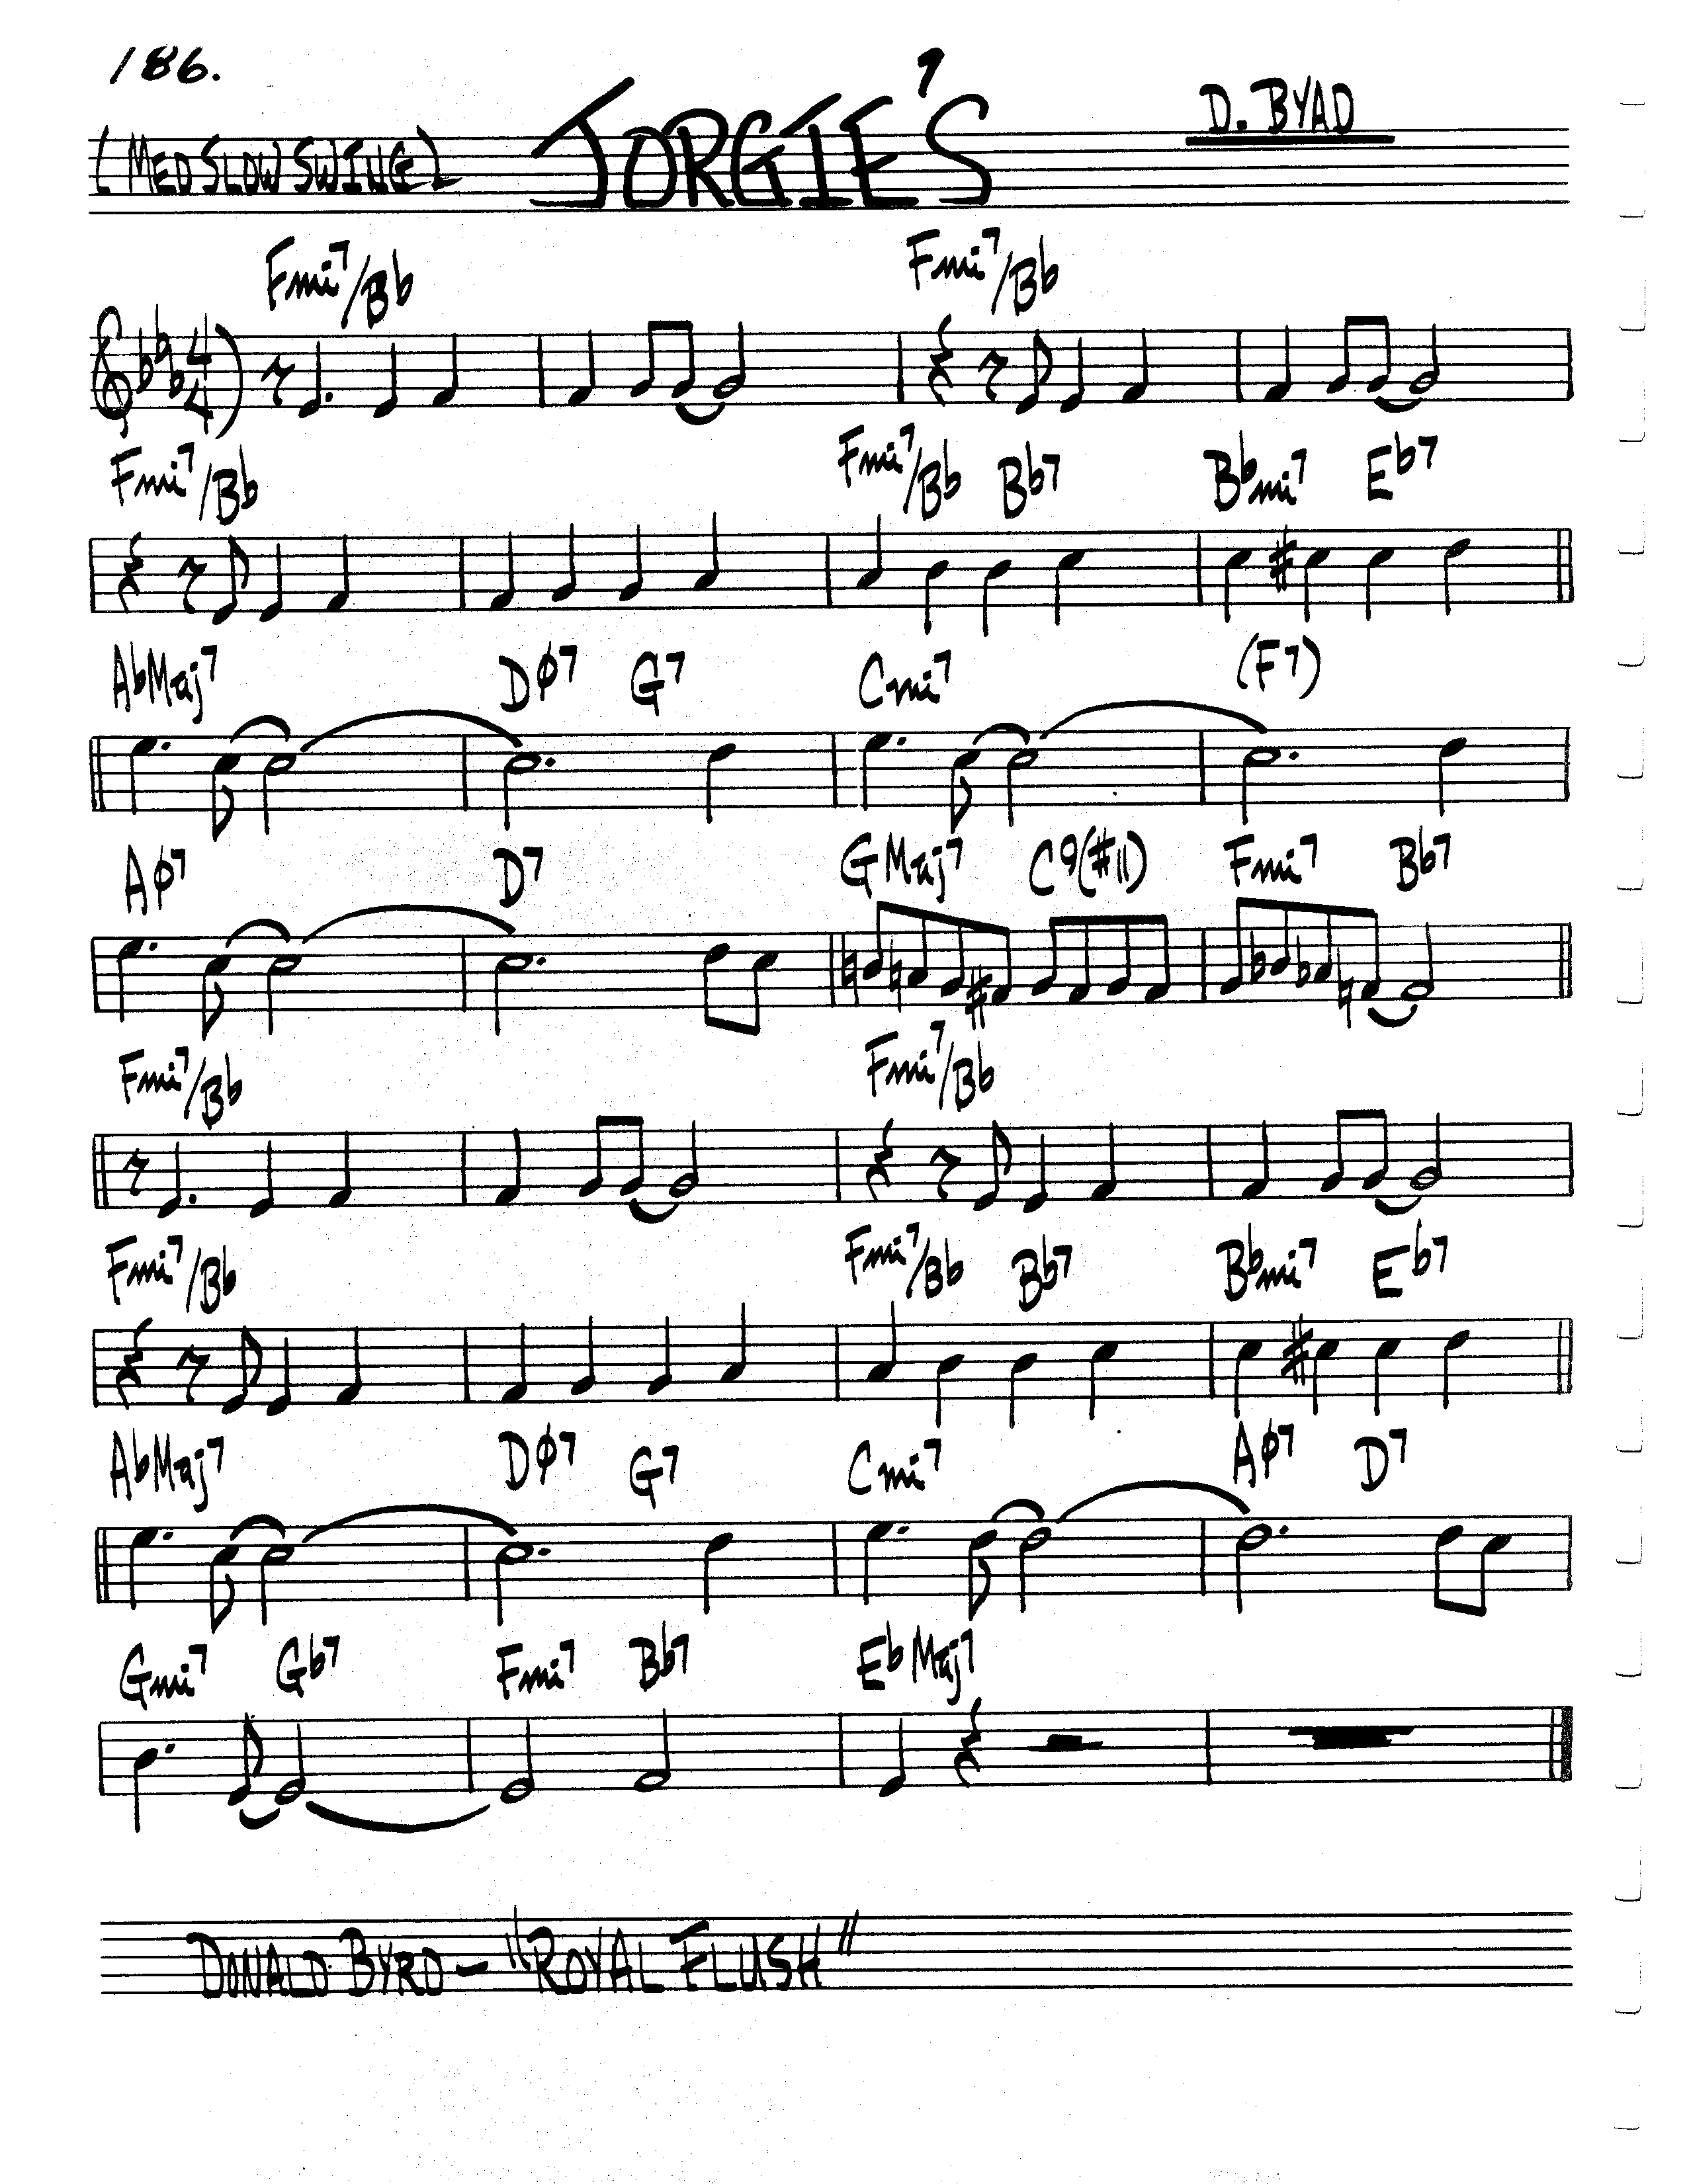 186.
(MED SLOW SWING) JORGIE'S D. BYRD
Fmi7/Bb Fmi7/Bb
4/4
Fmi7/Bb Fmi7/Bb Bb7 Bbmi7 Eb7
AbMaj7 Dø7 G7 Cmi7 (F7)
Aø7 D7 GMaj7 C9(#11) Fmi7 Bb7
Fmi7/Bb Fmi7/Bb
Fmi7/Bb Fmi7/Bb Bb7 Bbmi7 Eb7
AbMaj7 Dø7 G7 Cmi7 Aø7 D7
Gmi7 Gb7 Fmi7 Bb7 EbMaj7
DONALD BYRD - "ROYAL FLUSH"